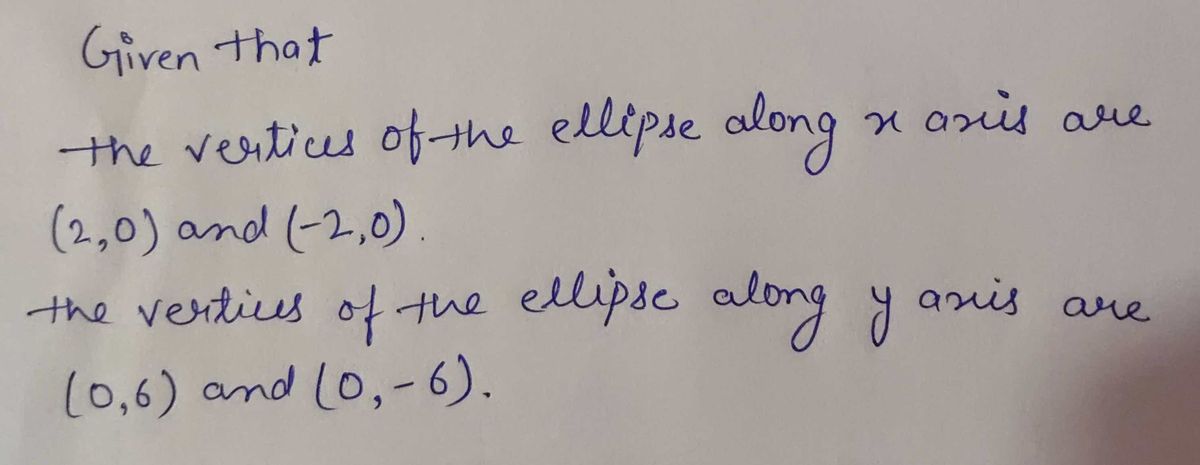 Given that
the vertices of the ellipse along x axis are
(2,0) and (-2,0).
the vertices of the ellipse along y axis are
(0,6) and (0,-6).